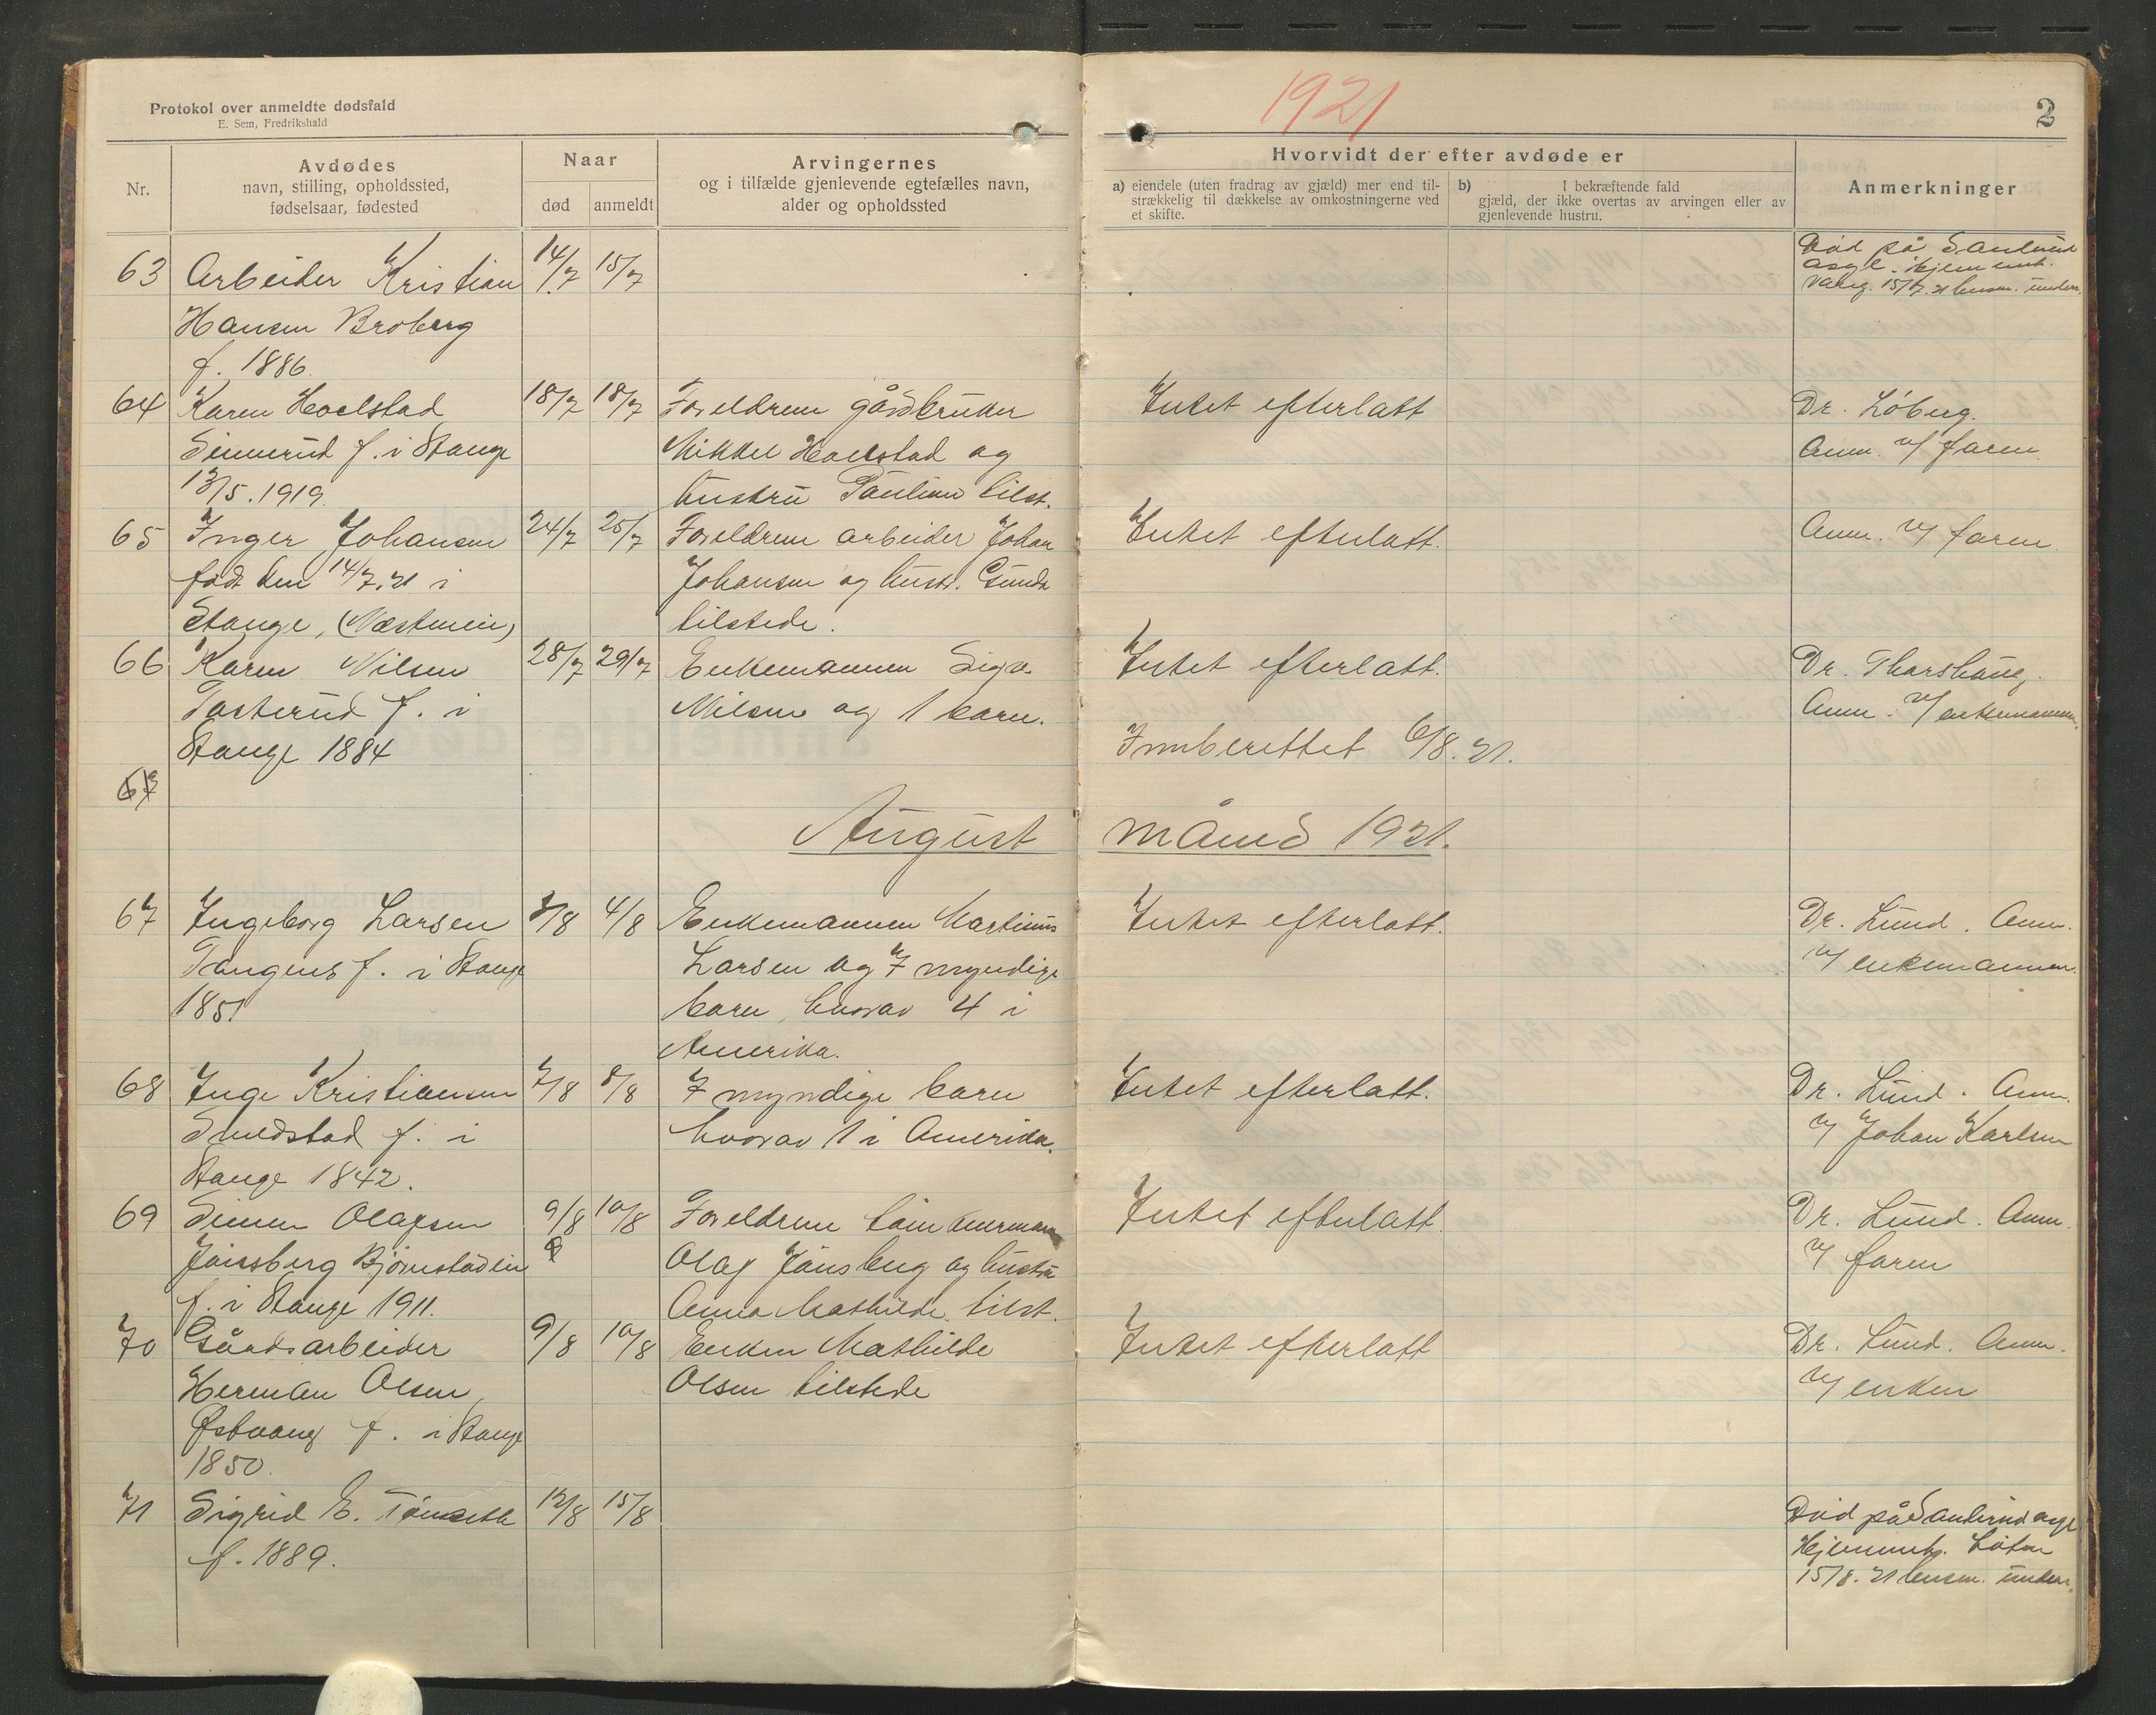 Protokol over anmeldte dødsfald
E. Sem, Fredrikshald
1921
2
Nr.
Avdødes
navn, stilling, opholdssted,
fødselsaar, fødested
Naar
død anmeldt
Arvingernes
og i tilfælde gjenlevende egtefælles navn,
alder og opholdssted
Hvorvidt der efter avdøde er
a) eiendele (uten fradrag av gjæld) mer end til-
strækkelig til dækkelse av omkostningerne ved
et skifte.
b) I bekræftende fald
gjæld, der ikke overtas av arvingen eller av
gjenlevende hustru.
Anmerkninger
63 Arbeider Kristian 14/7 15/7
Hansen Broberg
f. 1886.
Død på Sanderud
asyl. Hjemmh.
Vang. 15/7.21 lensm. underr.
64 Karen Hoelstad 18/7 18/7 Foreldrene gårdbruker Intet efterlatt Dr. Löberg.
Simerud f. i Stange Mikkel Hoelstad og Anm. v/ faren
13/5.1919. hustru Pauline tilst.
65 Inger Johansen 24/7 25/7 Foreldrene arbeider Johan Intet efterlatt. Anm. v/ faren.
født den 14/7.21 i Johansen og hustr. Gunda
Stange, (Næstmein) tilstede.
66 Karen Nilsen 28/7 29/7 Enkemannen Intet efterlatt. Dr. Tharshaug.
Tasterud f. i Nilsen og 1 barn. Anm. v/ enkemannen.
Stange 1884 Innberettet 6/8.21.
67
August måned 1921.
67 Ingeborg Larsen 3/8 4/8 Enkemannen Martinus Intet efterlatt. Dr. Lund. Anm.
Tangens f. i Stange Larsen og 7 myndige v/ enkemannen.
1851 barn, hvorav 4 i
Amerika.
68 Inge Kristiansen 7/8 8/8 7 myndige barn Intet efterlatt. Dr. Lund. Anm.
f. i hvorav 1 i Amerika. v/ Johan Karlsen
Stange 1842.
69 Simen Olafsen 9/8 10/8 Foreldrene Intet efterlatt. Dr. Lund. Anm.
Jønsberg Bjørnstadein Olaf Jønsberg og hustru v/ faren
f. i Stange 1911. Anna Mathilde tilst.
70 Gårdsarbeider 9/8 10/8 Enken Mathilde Intet efterlatt Dr. Lund. Anm.
Herman Olsen Olsen tilstede v/ enken
Østvang f. i Stange
1850.
71 Sigrid E. Tønseth 12/8 15/8
f. 1889.
Død på Sanderud asyl
Hjemmh. Løten
15/8.21 lensm. underr.